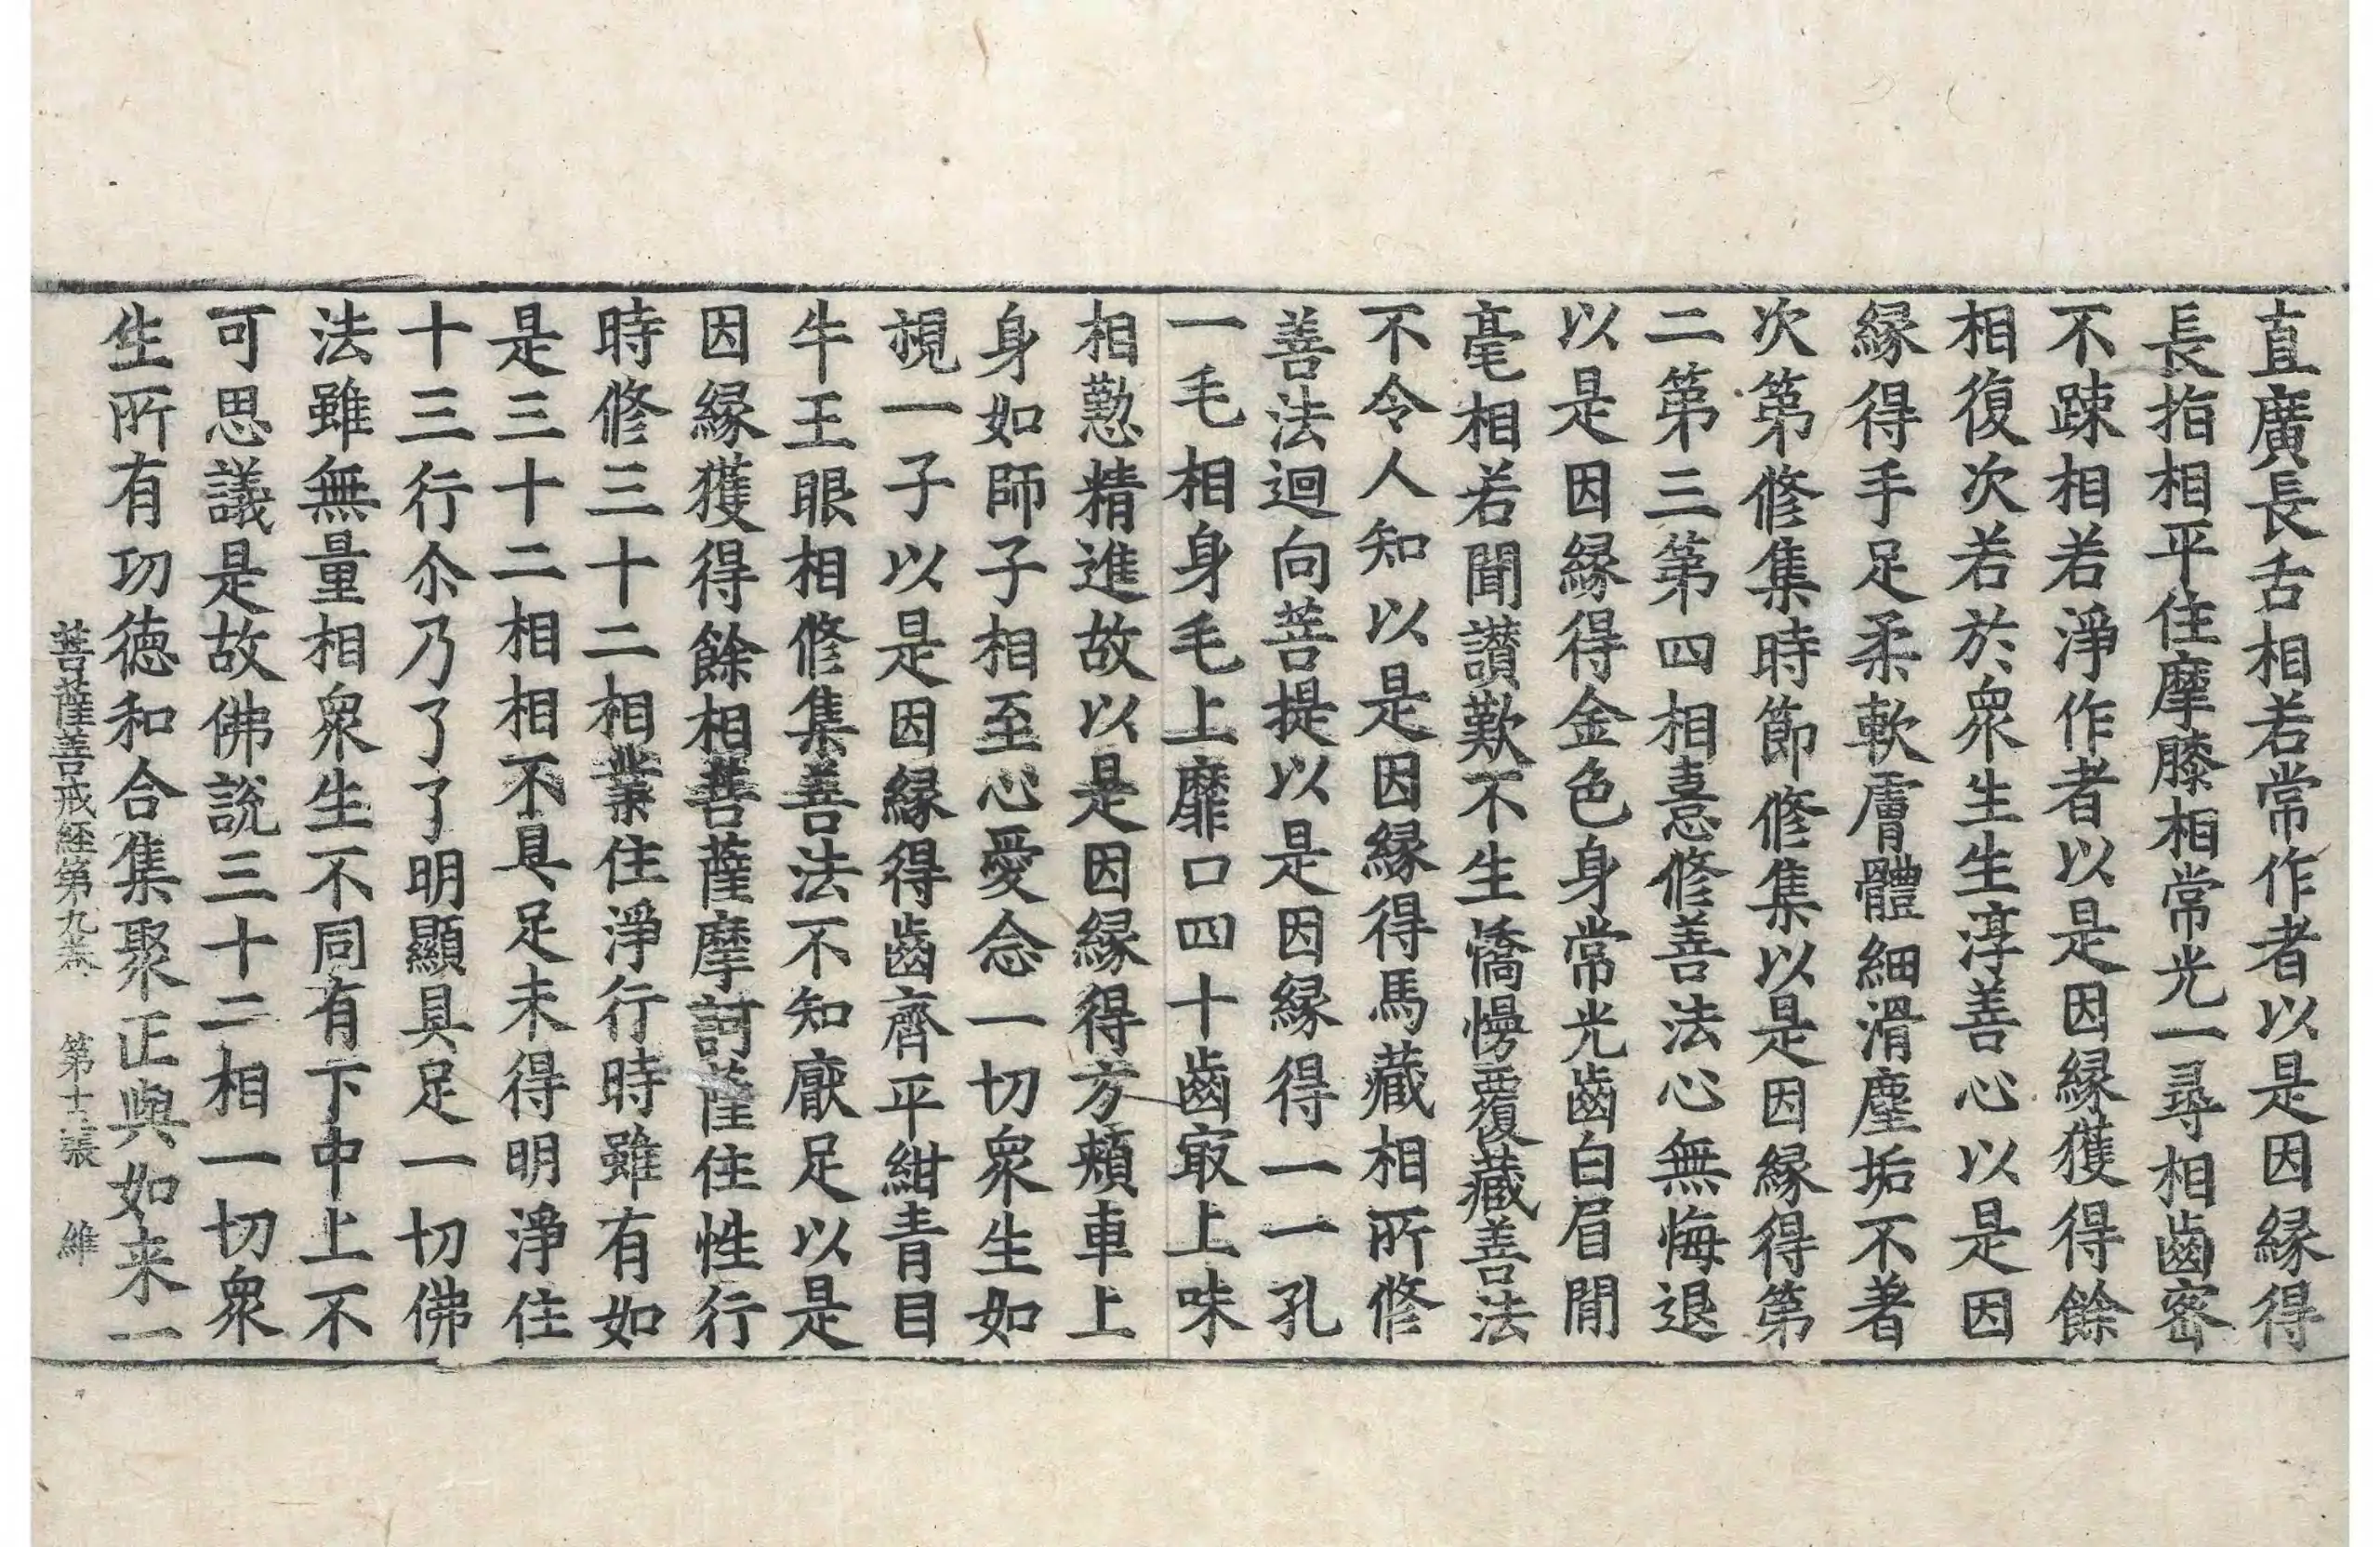 直廣長舌相若常作者以是因緣得
長指相平住摩膝相常光一尋相齒密
不踈相若淨作者以是因緣獲得餘
相復次若於衆生生淳善心以是因
緣得手足柔軟膚體細滑塵垢不著
次第修集時節修集以是因緣得第
二第三第四相憙修善法心無悔退
以是因緣得金色身常光齒白眉間
毫相若聞讃歎不生憍慢覆藏善法
不令人知以是因緣得馬藏相所修
善法迴向菩提以是因緣得一一孔
一毛相身毛上靡口四十齒㝡上味
相懃精進故以是因緣得方頰車上
身如師子相至心愛念一切衆生如
視一子以是因緣得齒齊平紺青目
牛王眼相修集善法不知厭足以是
因緣獲得餘相菩薩摩訶薩住性行
時修三十二相業住淨行時雖有如
是三十二相相不具足未得明淨住
十三行尒乃了了明顯具足一切佛
法雖無量相衆生不同有下中上不
可思議是故佛說三十二相一切衆
生所有功德和合集聚正與如来一
菩薩善戒経第九卷 第十二張 維